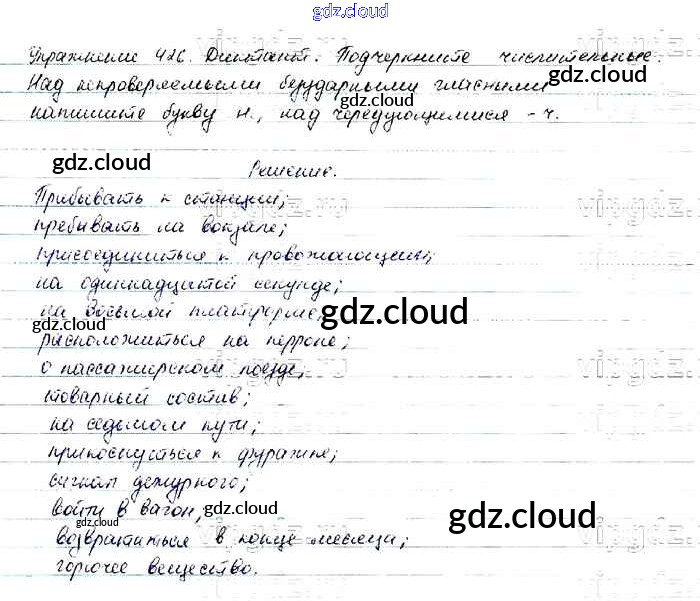 gdz.cloud
Упражнение 426. Диктант. Подчеркните числительные.
Над непроверяемыми безударными гласными
gdz.cloud
gdz.cloud
напишите букву н., над чередующимися - ч.
gdz.cloud
Решение.
vipgdz.ru
Прибывать к станции;
vipgdz.ru
пребывать на вокзале;
присоединиться к провожающим;
на одиннадцатой секунде;
на восьмой платформе;
gdz.cloud
gdz.cloud
gdz.cloud
расположиться на перроне;
о пассажирском поезде;
товарный состав;
на седьмом пути;
прикоснуться к фуражке;
gdz.cloud
сигнал дежурного;
войти в вагон,
gdz.cloud
gdz.cloud
gdz.cloud
возвратиться в конце месяца;
горючее вещество.